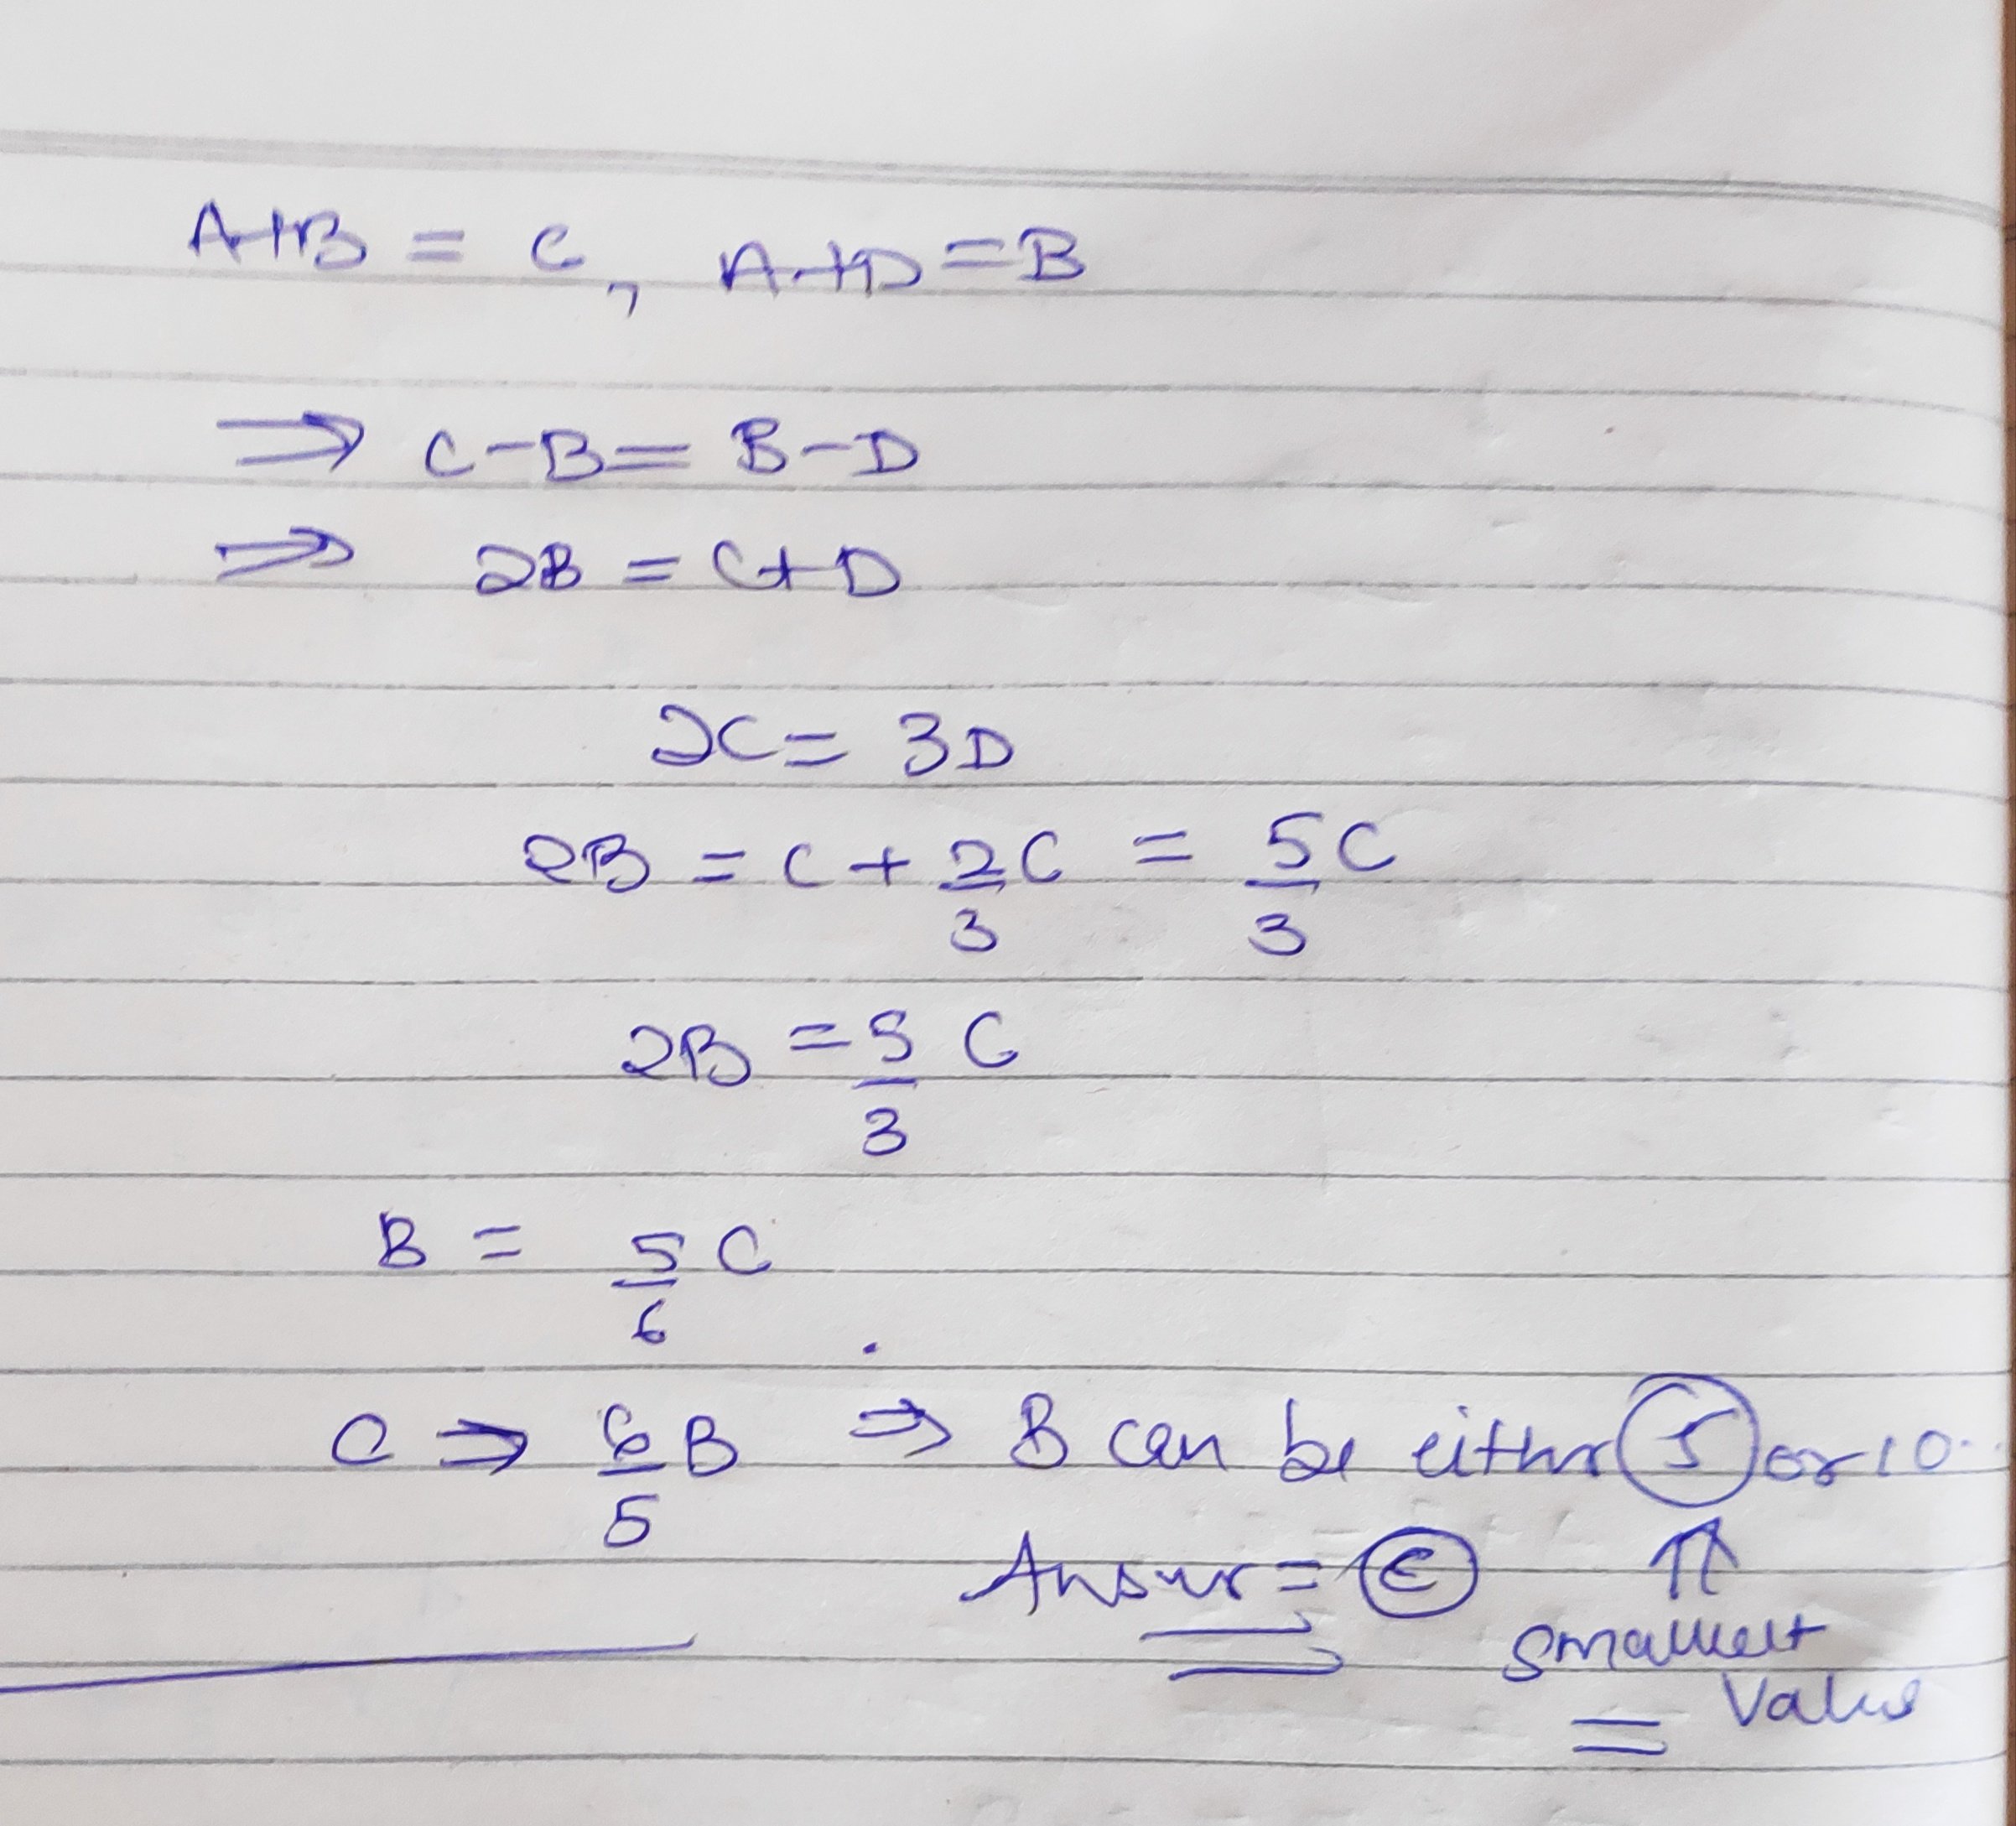 A+B = C, A+D = B
⇒ C-B = B-D
⇒ 2B = C+D
2C = 3D
2B = C + 2/3 C = 5/3 C
2B = 5/3 C
B = 5/6 C
C ⇒ 6/5 B ⇒ B can be either 5 or 10..
Answer = C
smallest
value